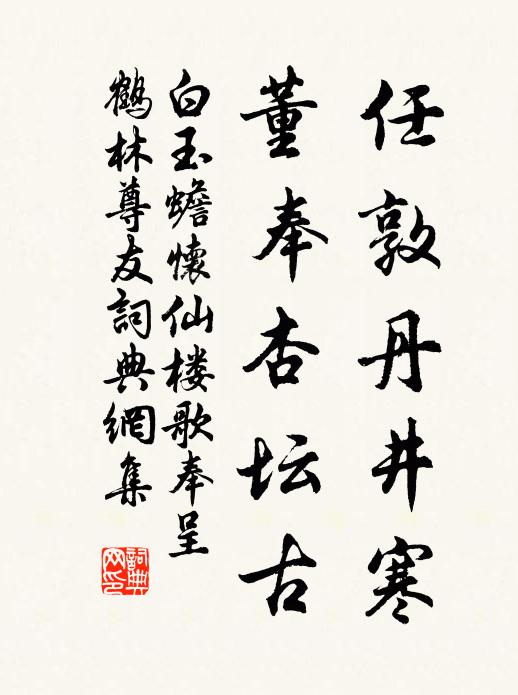 任敦丹井寒
董奉杏坛古
白玉蟾懷仙楼歌奉呈
鶴林尊友詞典網集
詞典网印